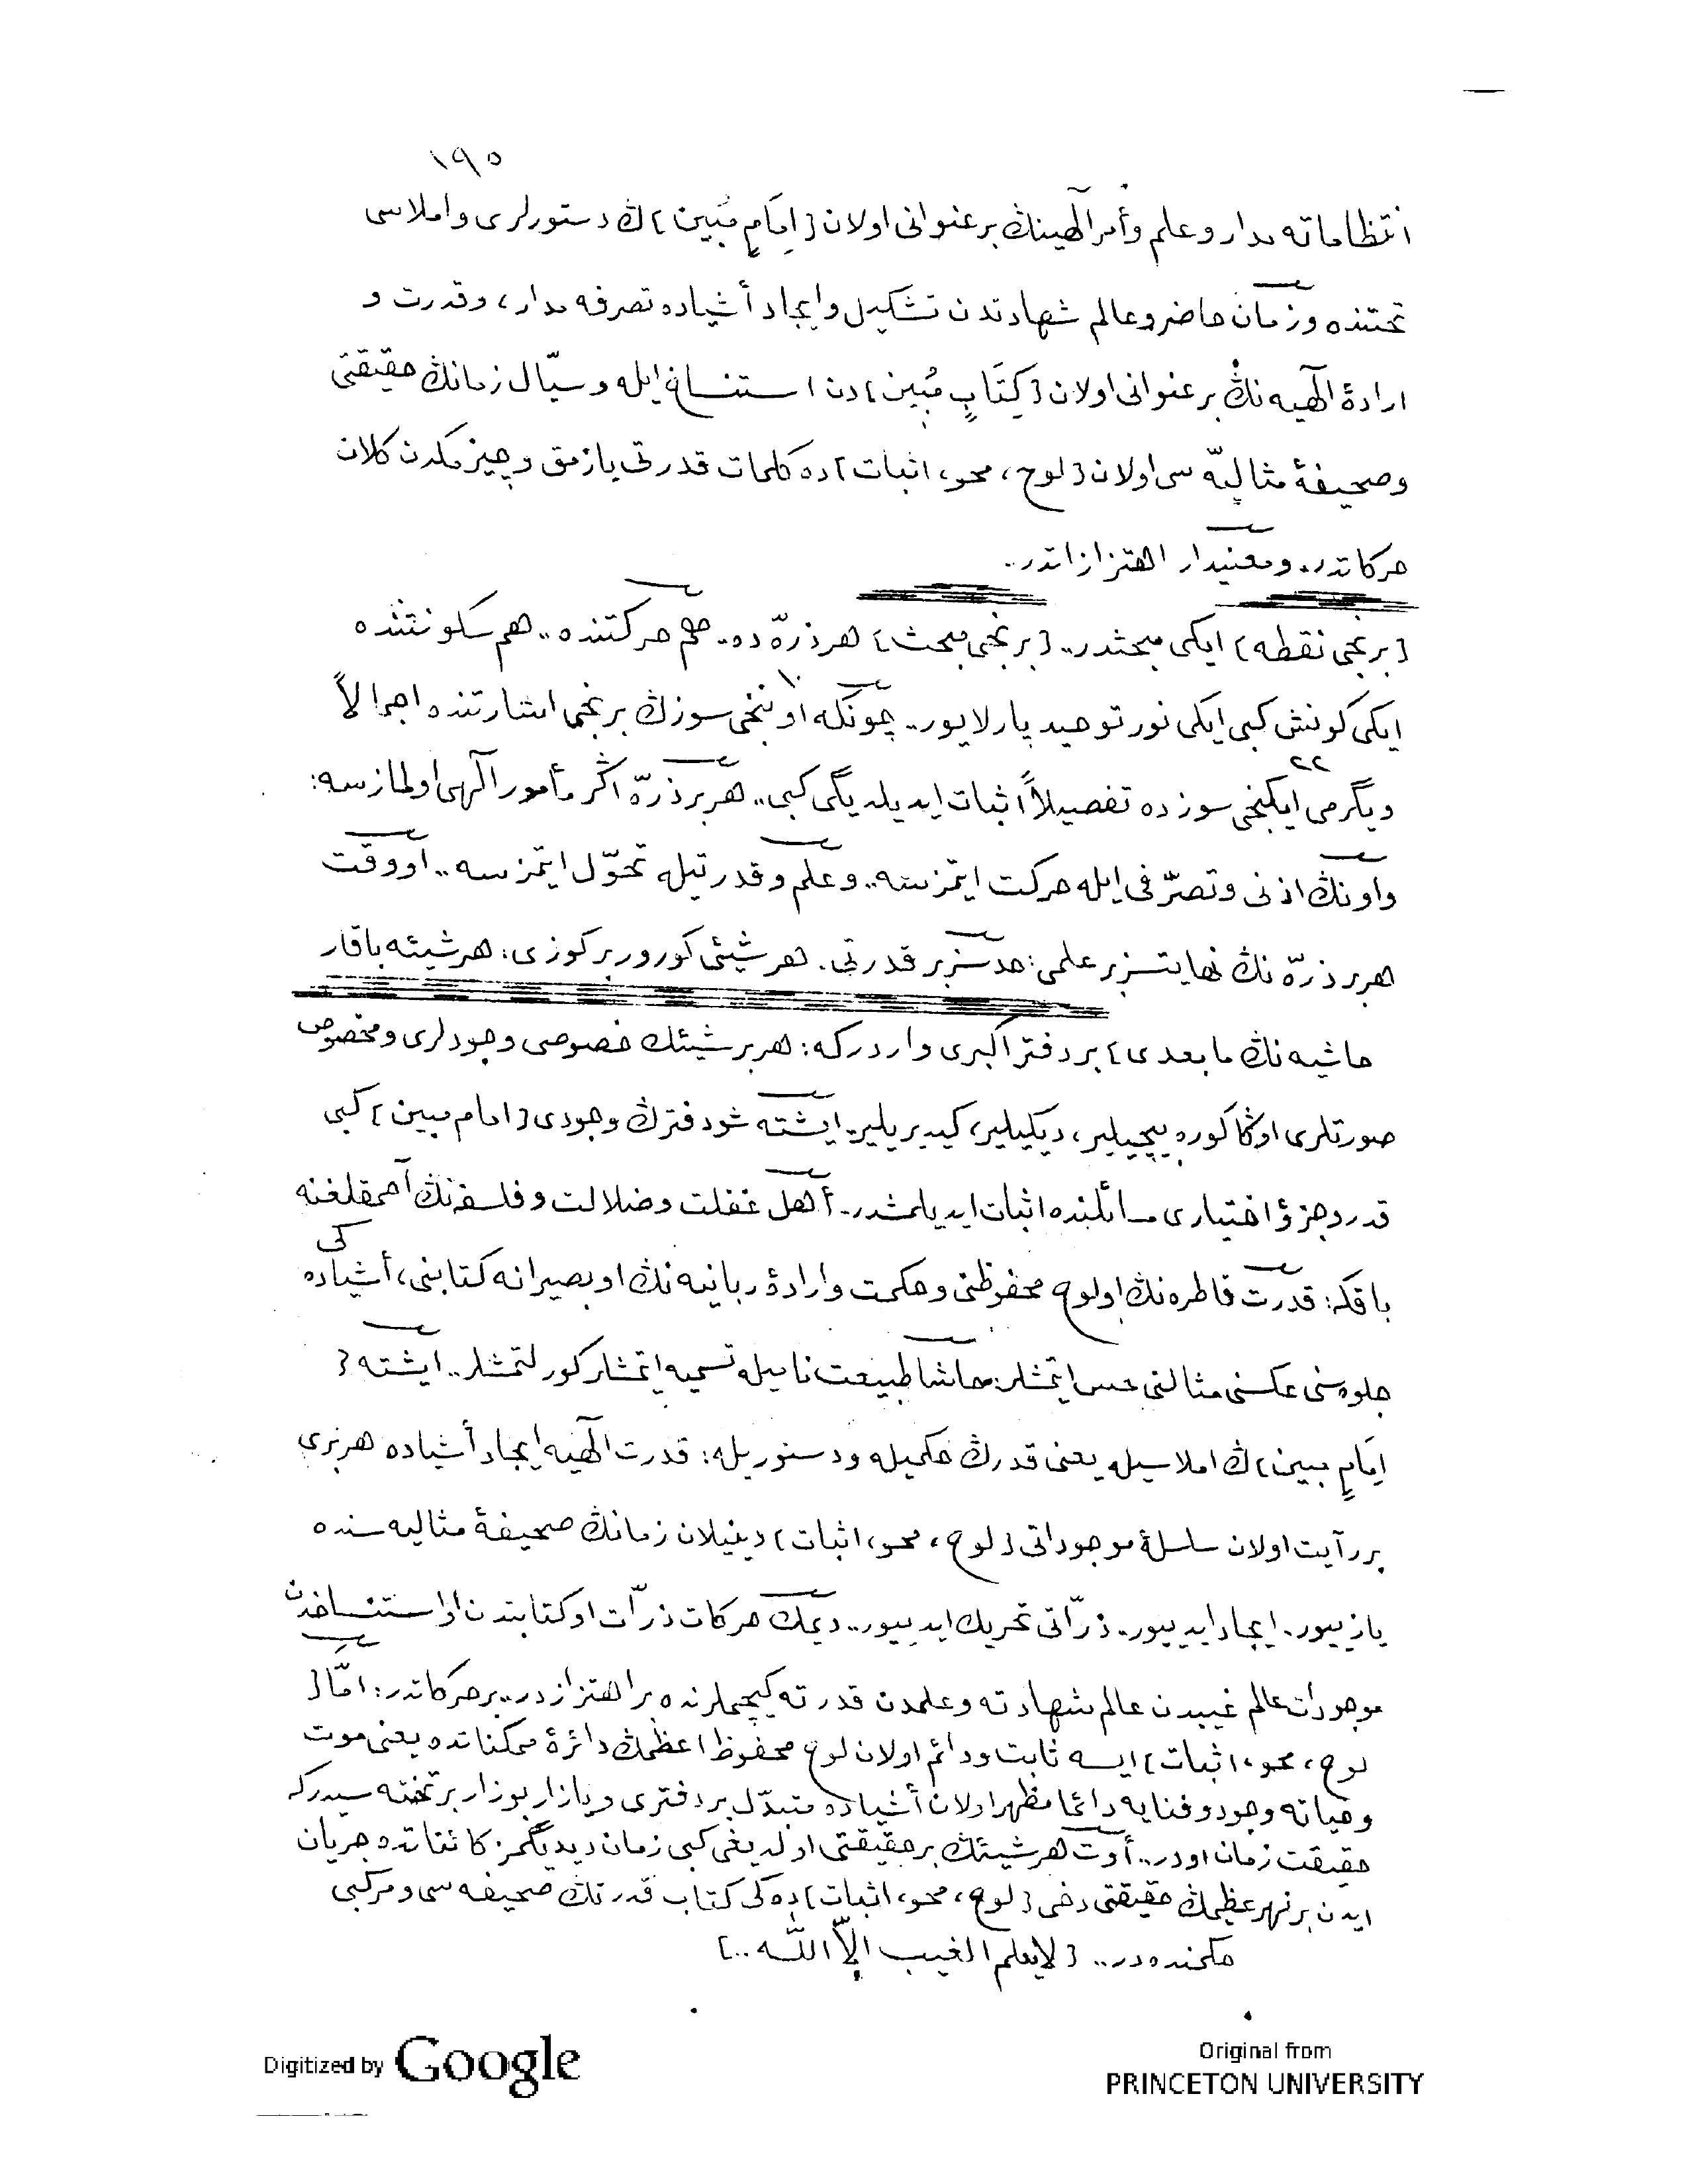 ١٩٥
انتظاماته مدار و علم وأمر آلهينڭ بر عنوانى اولان [اِمَامٍ مُبين] ڭ دستورلرى و املاسى
تحتنده و زمان حاضر و عالم شهادتدن تشكيل و ايجاد أشياده تصرفه مدار، و قدرت و
ارادۀ آلهيه نڭ بر عنوانى اولان [كِتَابٍ مُبين] دن استنساخ ايله و سيّال زمانڭ حقيقتى
و صحيفۀ مثاليّه سى اولان [لوح، محو، اثبات] ده كلمات قدرتى يازمق و چيزمكدن كلان
حركاتدر. و معنيدار اهتزازاتدر..
[برنجى نقطه] ايكى مبحثدر.. [برنجى مبحث] هر ذرّه ده.. هم حركتنده.. هم سكونتنده
ايكى كونش كبى ايكى نور توحيد پارلايور.. چونكه اوننجى سوزڭ برنجى اشارتنده اجمالاً
١٠
و يگرمى ايكنجى سوزده تفصيلاً اثبات ايديلديگى كبى.. هر بر ذرّه اگر مأمور آلهى اولمازسه:
٢٢
و اونڭ اذنى و تصرّفى ايله حركت ايتمزسه.. و علم و قدرتيله تحوّل ايتمزسه.. او وقت
هر بر ذرّه نڭ نهايتسز بر علمى: حدسز بر قدرتى. هر شيئى كورور بر كوزى: هر شيئه باقار
حاشيه نڭ مابعدى] بر دفتر اكبرى واردركه: هر بر شيئڭ خصوصى وجودلرى و مخصوص
صورتلرى اوڭا كوره بيچيلير، ديكيلير، كيديريلير. ايشته شو دفترڭ وجودى [امام مبين] كبى
قدر و جزؤ اختيارى مسائلنده اثبات ايديلمشدر.. أهل غفلت و ضلالت و فلسفه نڭ أحمقلغنه
باقكه: قدرت فاطره نڭ او لوح محفوظنى و حكمت و ارادۀ ربانيه نڭ او بصيرانه كتابنى، أشياده كى
جلوه سنى عكسنى مثالنى حس ايتمشلر: حاشا طبيعت ناميله تسميه ايتمشلر كورلتمشلر.. ايشته [
اِمَامٍ مبين] ڭ املاسيله يعنى قدرڭ حكميله و دستوريله: قدرت آلهيه ايجاد أشياده هر برى
بر رآيت اولان سلسلۀ موجوداتى [لوح، محو، اثبات] دينيلان زمانڭ صحيفۀ مثاليه سنده
يازييور. ايجاد ايدييور. ذرّاتى تحريك ايدييور.. ديمك حركات ذرّات او كتابتدن او استنساخدن
موجودات عالم غيبدن عالم شهادته و علمدن قدرته كيچملرنده بر اهتزازدر.. بر حركاتدر: امّا [
لوح، محو، اثبات] ايسه ثابت و دائم اولان لوح محفوظ اعظمڭ دائرۀ ممكناتده يعنى موت
و حياته وجود و فنايه دائما مظهر اولان أشياده متبدّل بر دفترى و يازار بوزار بر تخته سيدركه
حقيقت زمان اودر.. أوت هر شيئڭ بر حقيقتى اولديغى كبى زمان ديديگمز كائناتده جريان
ايدن بر نهر عظيمڭ حقيقتى دخى [لوح، محو، اثبات] ده كى كتاب قدرتڭ صحيفه سى و مركبى
حكمنده در.. [لايعلم الغيب الاّ الله ..]
Digitized by Google
Original from
PRINCETON UNIVERSITY